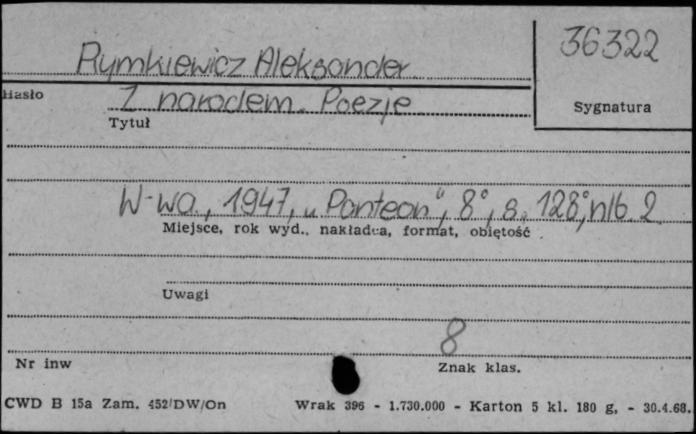 36322
Rymkiewicz Aleksander
Hasło
Z narodem. Poezje
Sygnatura
Tytuł
W-wa, 1947, „Panteon”, 8°, s. 128, nlb. 2
Miejsce, rok wyd., nakładca, format, objętość
Uwagi
8
Nr inw
Znak klas.
CWD B 15a Zam. 452/DW/On Wrak 396 - 1.730.000 - Karton 5 kl. 180 g. - 30.4.68.